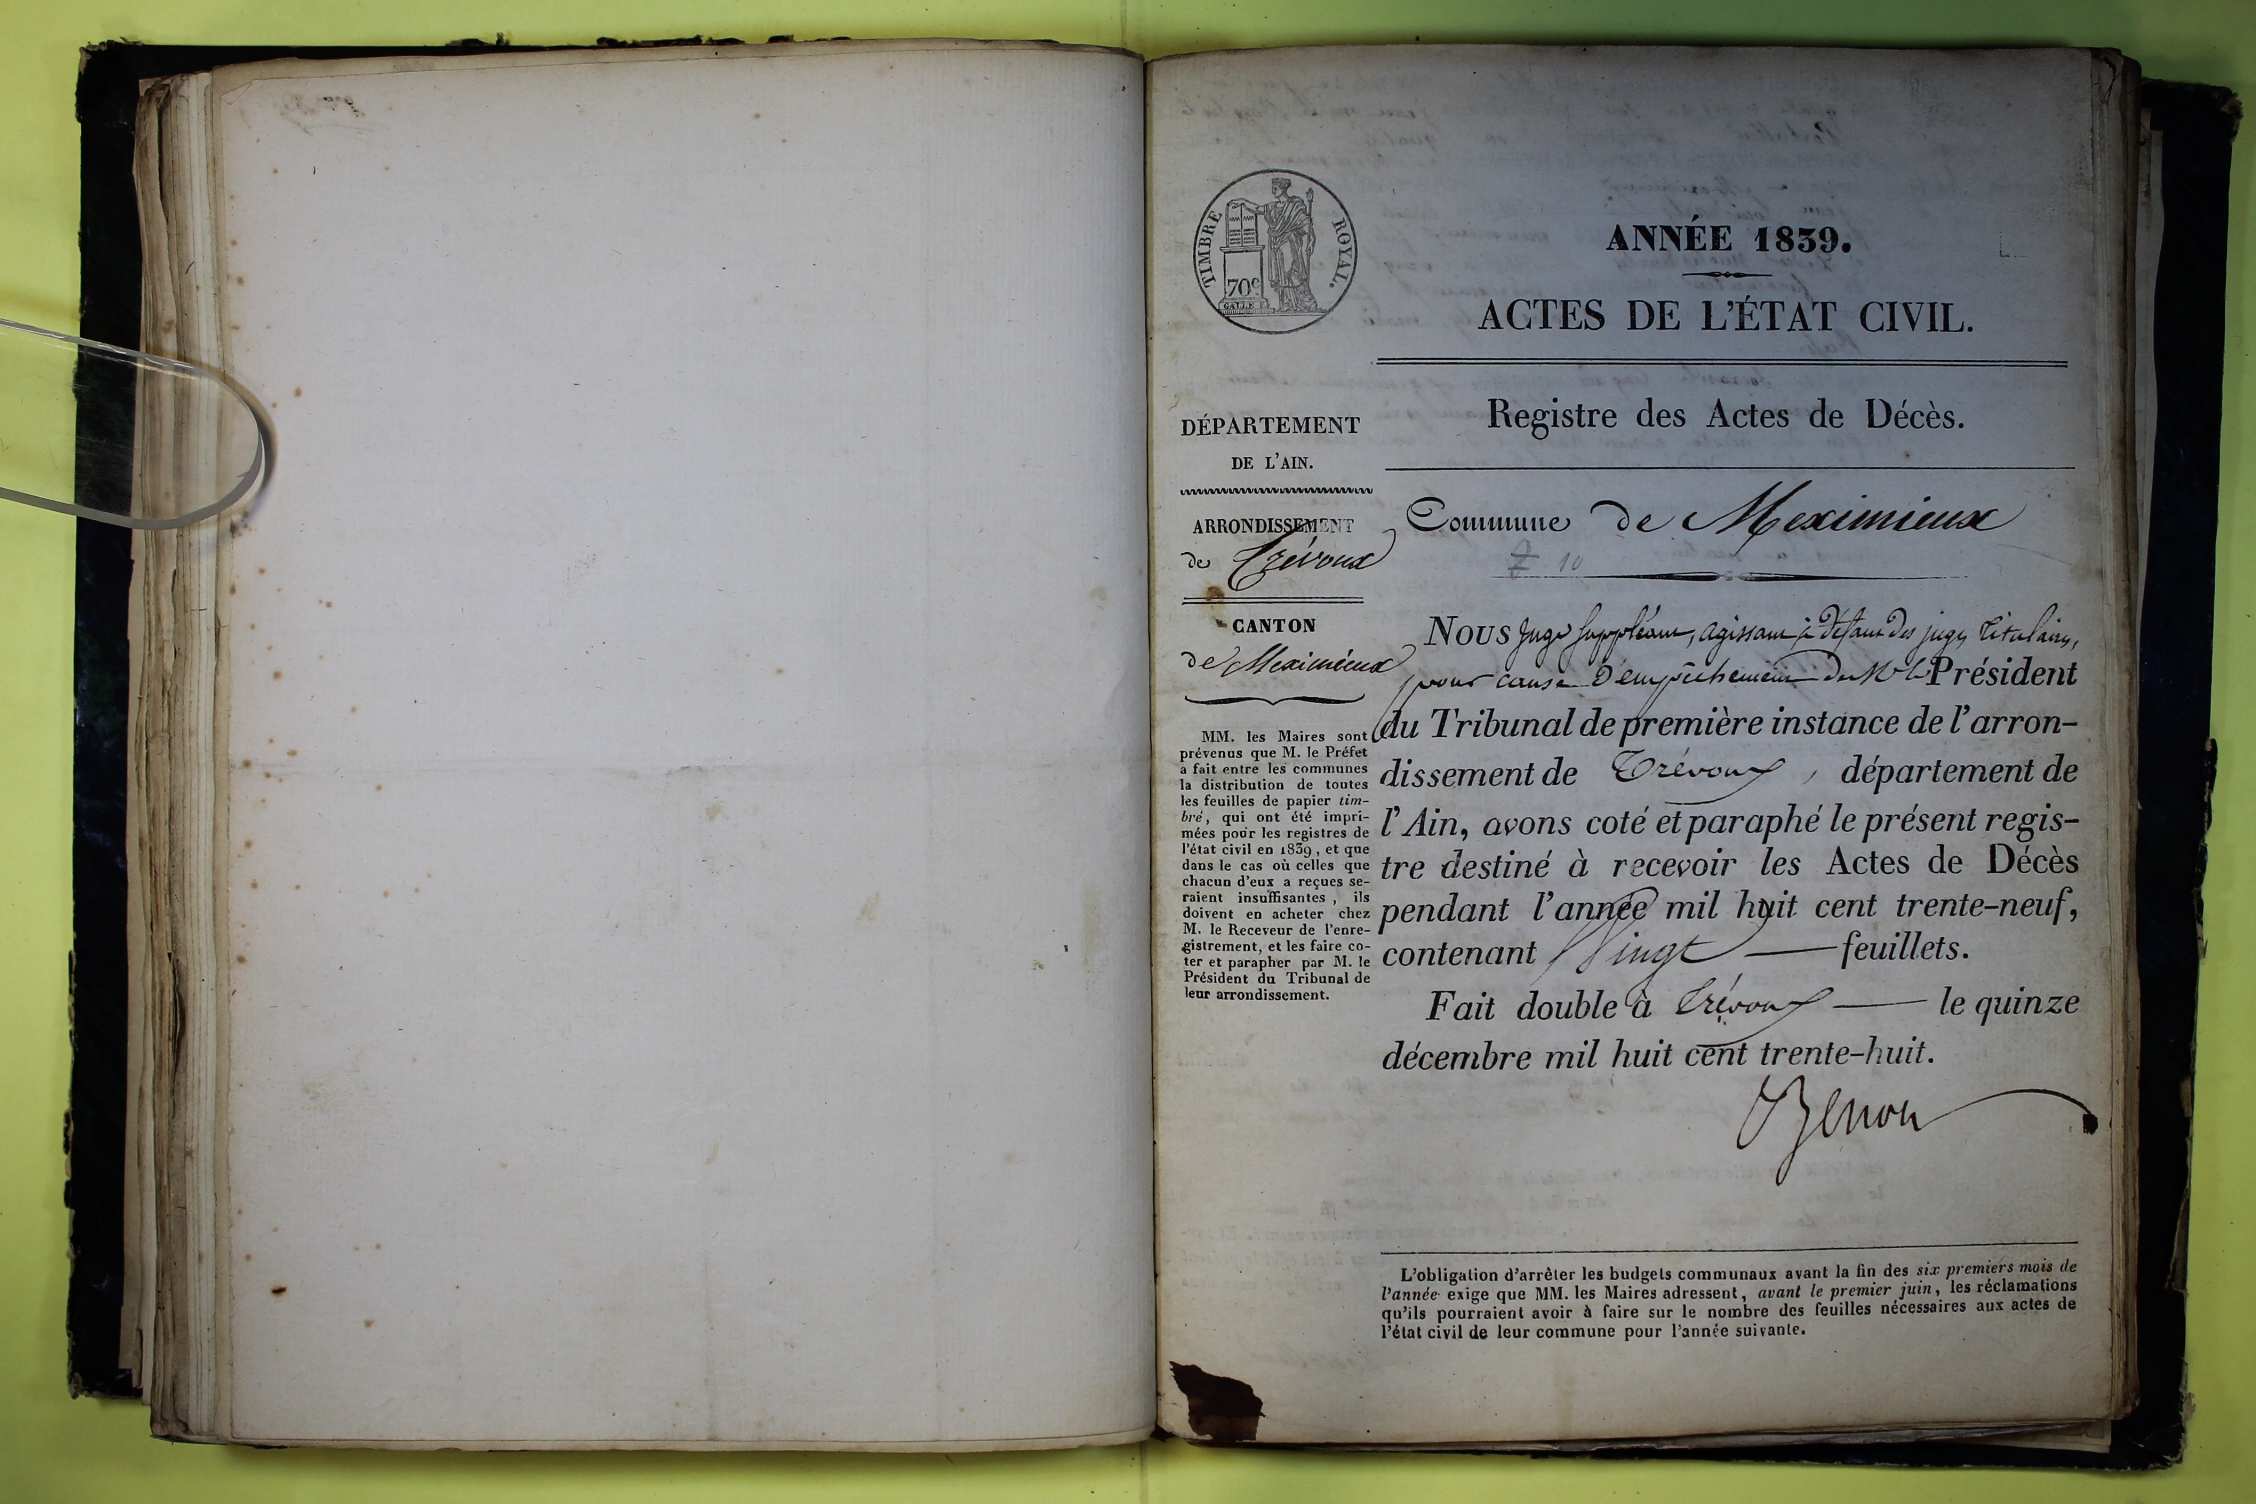 TIMBRE ROYAL.
70c
GALLE F.
ANNÉE 1839.
ACTES DE L'ÉTAT CIVIL.
Registre des Actes de Décès.
DÉPARTEMENT
DE L'AIN.
ARRONDISSEMENT
de Trévoux
CANTON
de Meximieux
MM. les Maires sont
prévenus que M. le Préfet
a fait entre les communes
la distribution de toutes
les feuilles de papier tim-
bré, qui ont été impri-
mées pour les registres de
l'état civil en 1839, et que
dans le cas où celles que
chacun d'eux a reçues se-
raient insuffisantes, ils
doivent en acheter chez
M. le Receveur de l'enre-
gistrement, et les faire co-
ter et parapher par M. le
Président du Tribunal de
leur arrondissement.
Commune de Meximieux
10
NOUS Juge suppléant, agissant à défaut des juges titulaires,
pour cause d'empêchement de Mr le Président
du Tribunal de première instance de l'arron-
dissement de Trévoux, département de
l'Ain, avons coté et paraphé le présent regis-
tre destiné à recevoir les Actes de Décès
pendant l'année mil huit cent trente-neuf,
contenant Vingt feuillets.
Fait double à Trévoux le quinze
décembre mil huit cent trente-huit.
L'obligation d'arrêter les budgets communaux avant la fin des six premiers mois de
l'année exige que MM. les Maires adressent, avant le premier juin, les réclamations
qu'ils pourraient avoir à faire sur le nombre des feuilles nécessaires aux actes de
l'état civil de leur commune pour l'année suivante.